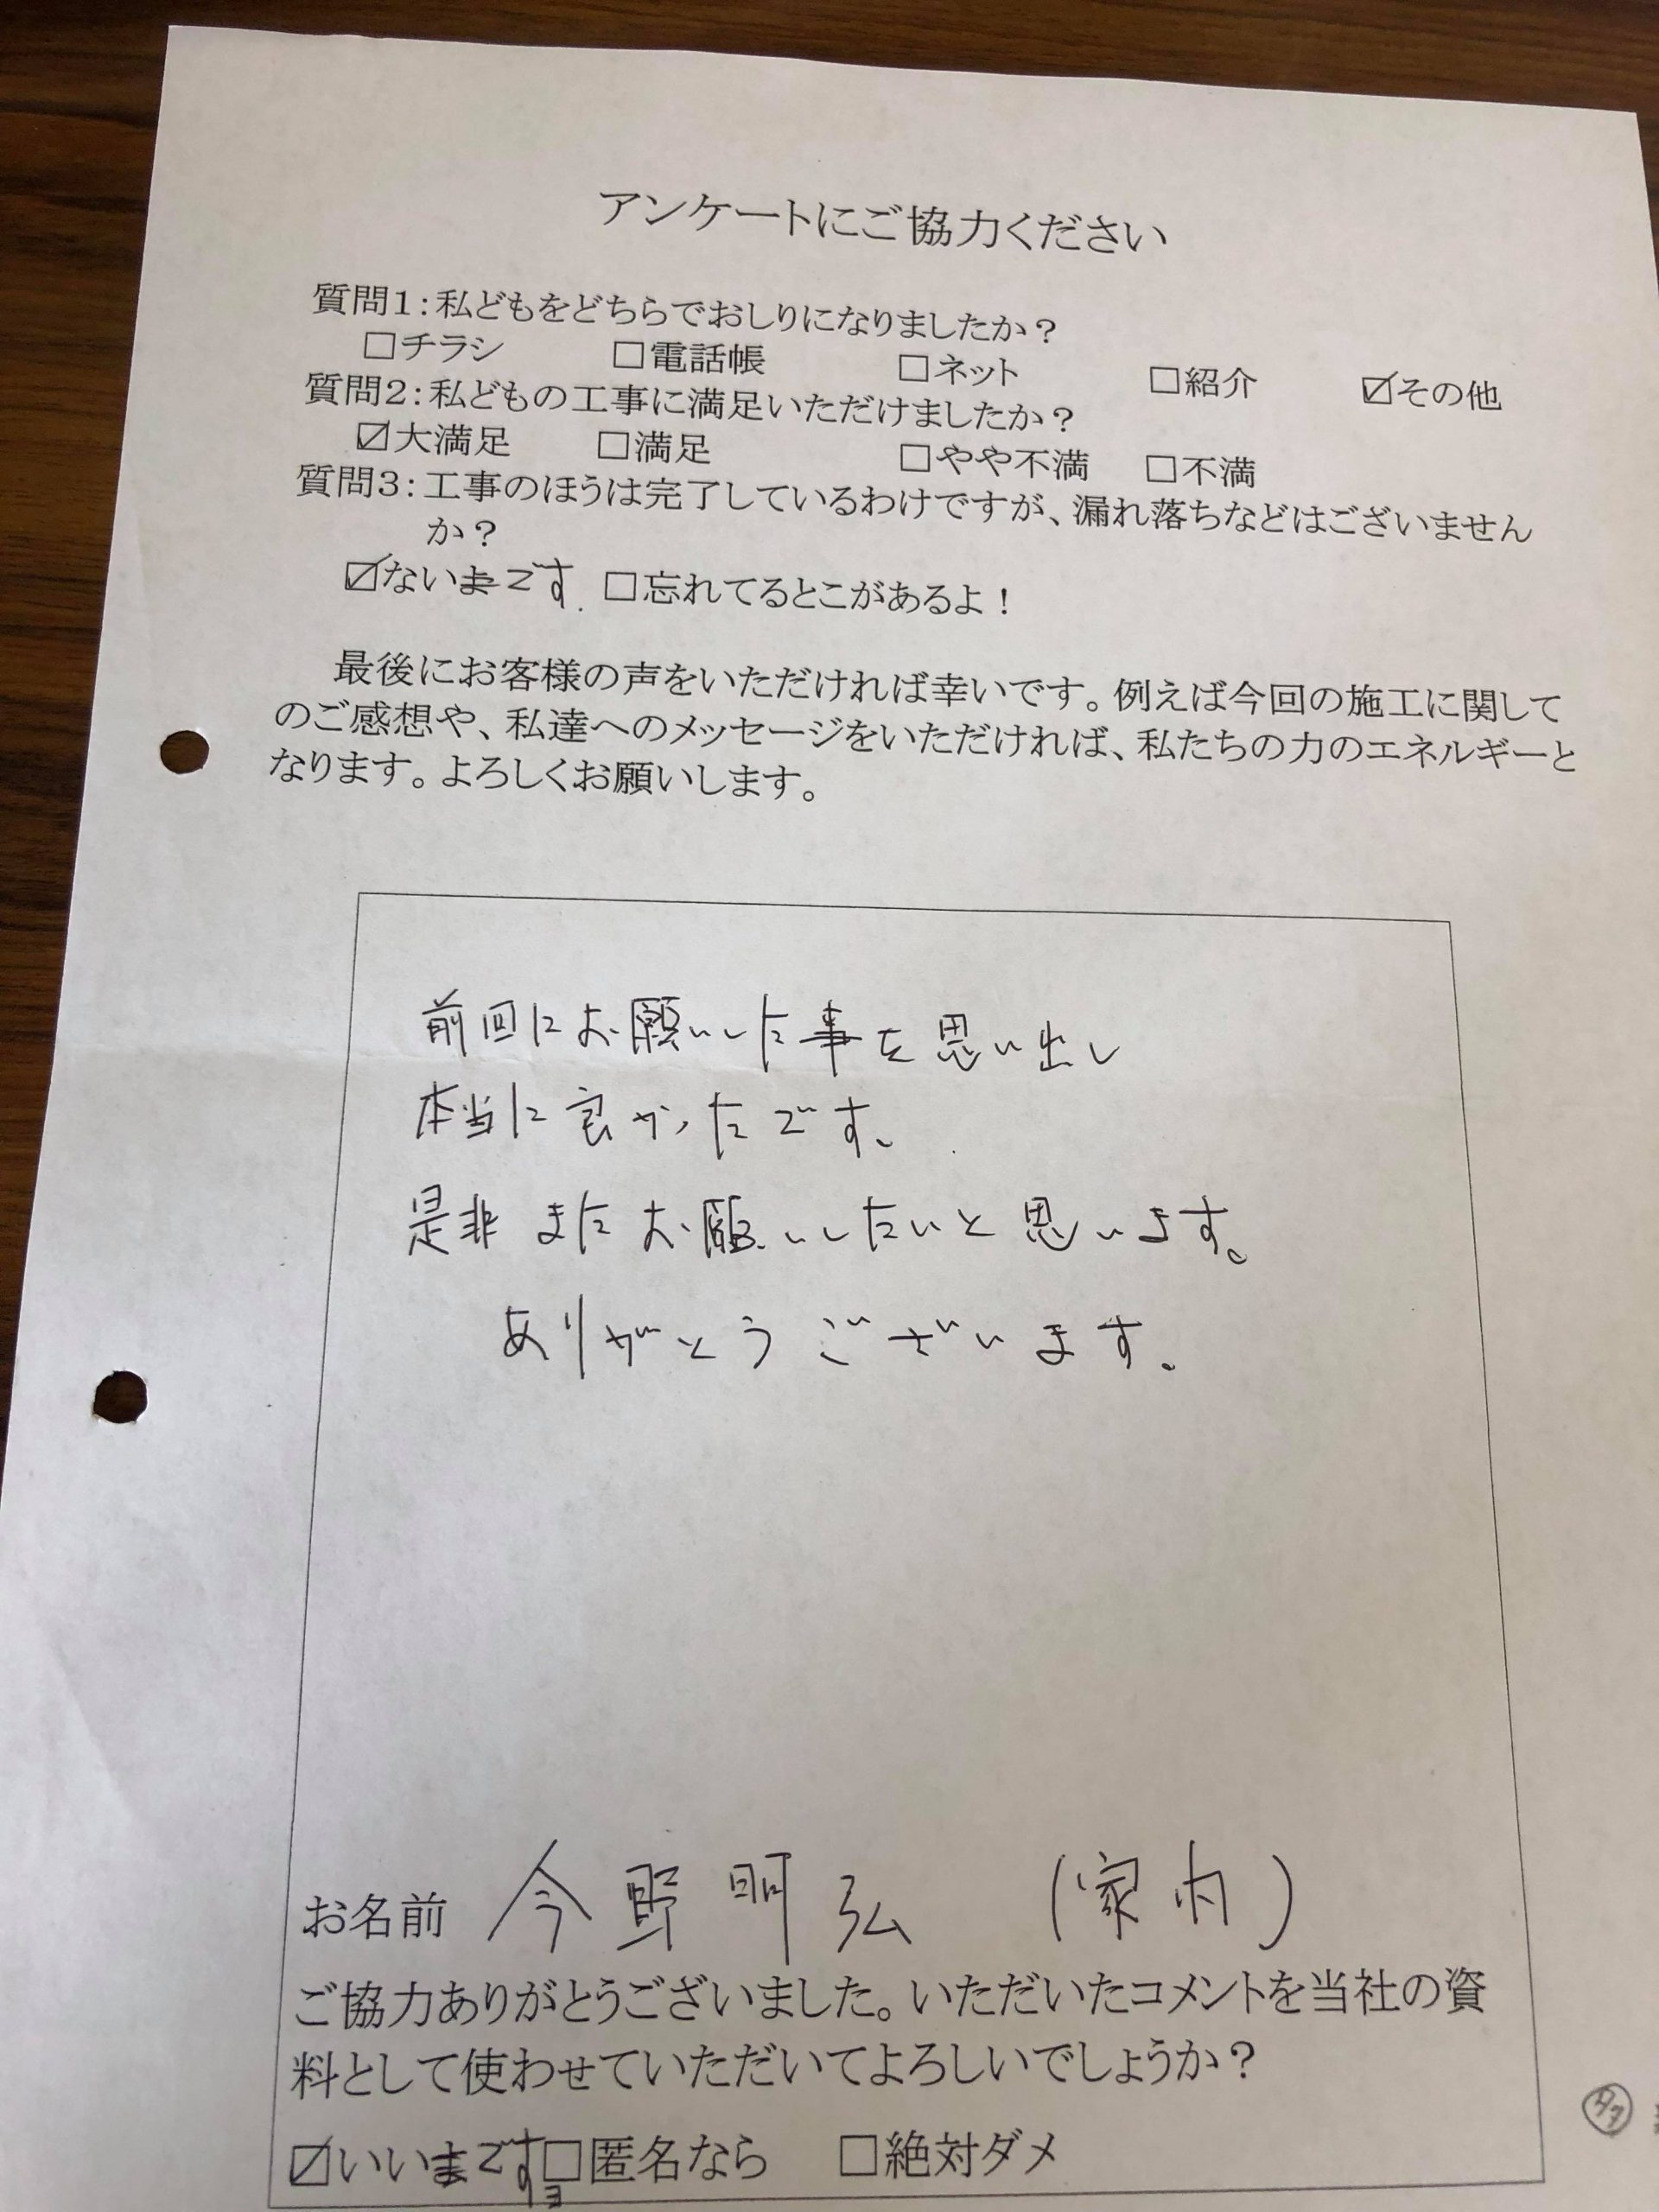 アンケートにご協力ください
質問1:私どもをどちらでおしりになりましたか?
□チラシ □電話帳 □ネット □紹介 ☑その他
質問2:私どもの工事に満足いただけましたか?
☑大満足 □満足 □やや不満 □不満
質問3:工事のほうは完了しているわけですが、漏れ落ちなどはございません
か?
☑ないです. □忘れてるとこがあるよ!
最後にお客様の声をいただければ幸いです。例えば今回の施工に関して
のご感想や、私達へのメッセージをいただければ、私たちの力のエネルギーと
なります。よろしくお願いします。
前回にお願いした事を思い出し
本当に良かったです。
是非またお願いしたいと思います。
ありがとうございます。
お名前 今野明弘 (家内)
ご協力ありがとうございました。いただいたコメントを当社の資
料として使わせていただいてよろしいでしょうか?
☑いいですヨ □匿名なら □絶対ダメ